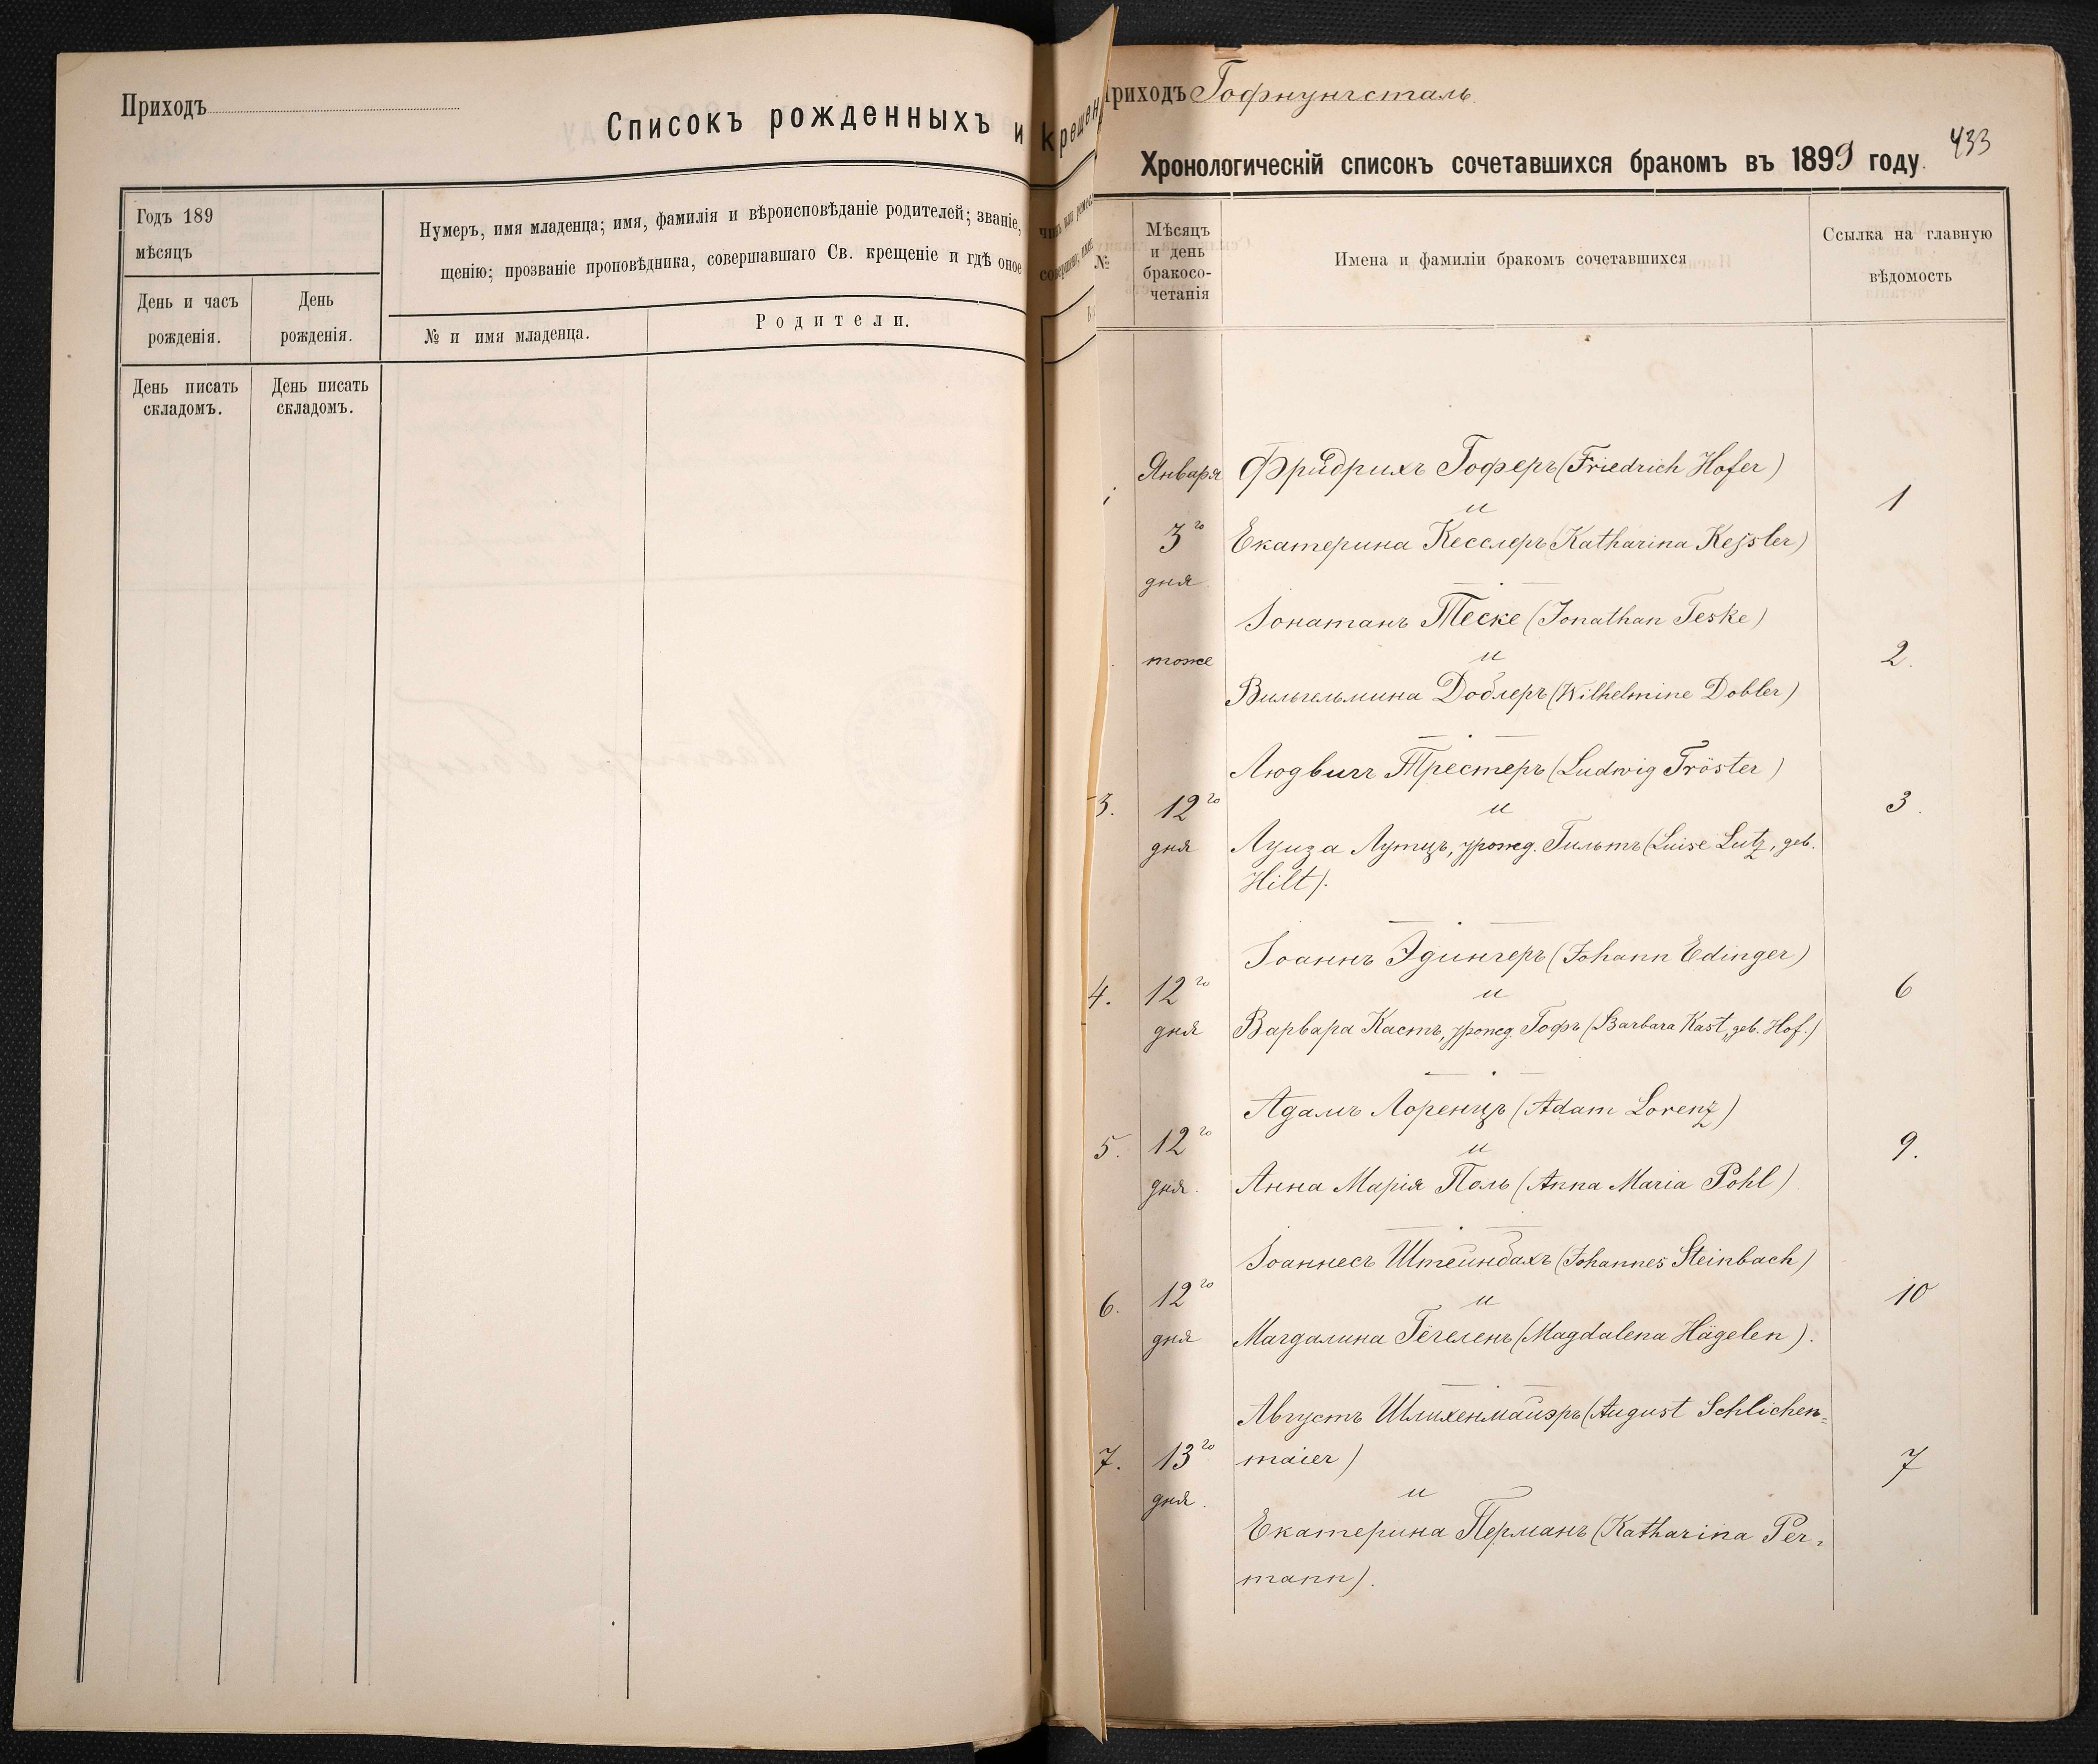 Приходъ
Списокъ рожденныхъ и крещен
Годъ 189
мѣсяцъ
Нумеръ, имя младенца; имя, фамилія и вѣроисповѣданіе родителей; званіе,
щенію; прозваніе проповѣдника, совершавшаго Св. крещеніе и гдѣ оное
День и часъ
рожденія.
День
рожденія.
№ и имя младенца.
Родители.
День писать
складомъ.
День писать
складомъ.
Приходъ Гофнунгсталь
433
Хронологическій списокъ сочетавшихся бракомъ въ 1899 году.
№
Мѣсяцъ
и день
бракосо-
четанія
Имена и фамиліи бракомъ сочетавшихся
Ссылка на главную
вѣдомость
Января
3го
дня
Фридрихъ Гоферъ (Friedrich Hofer)
и
Екатерина Кесслеръ (Katharina Keſsler)
1
тоже
Іонатанъ Теске (Jonathan Teske)
и
Вильгельмина Доблеръ (Wilhelmine Dobler)
2.
3.
12го
дня
Людвигъ Трестеръ (Ludwig Tröster)
и
Луиза Лутцъ, урожд. Гильтъ (Luise Lutz, geb.
Hilt).
3.
4.
12го
дня
Іоаннъ Эдингеръ (Johann Edinger)
и
Варвара Кастъ, урожд. Гофъ (Barbara Kast, geb. Hof.)
6
5.
12го
дня.
Адамъ Лоренцъ (Adam Lorenz)
и
Анна Марія Поль (Anna Maria Pohl)
9.
6.
12го
дня
Іоаннесъ Штейнбахъ (Johannes Steinbach)
и
Магдалина Гегеленъ (Magdalena Hägelen).
10
7.
13го
дня.
Августъ Шлихенмайэръ (August Schlichen=
maier)
и
Екатерина Перманъ (Katharina Per=
mann).
7